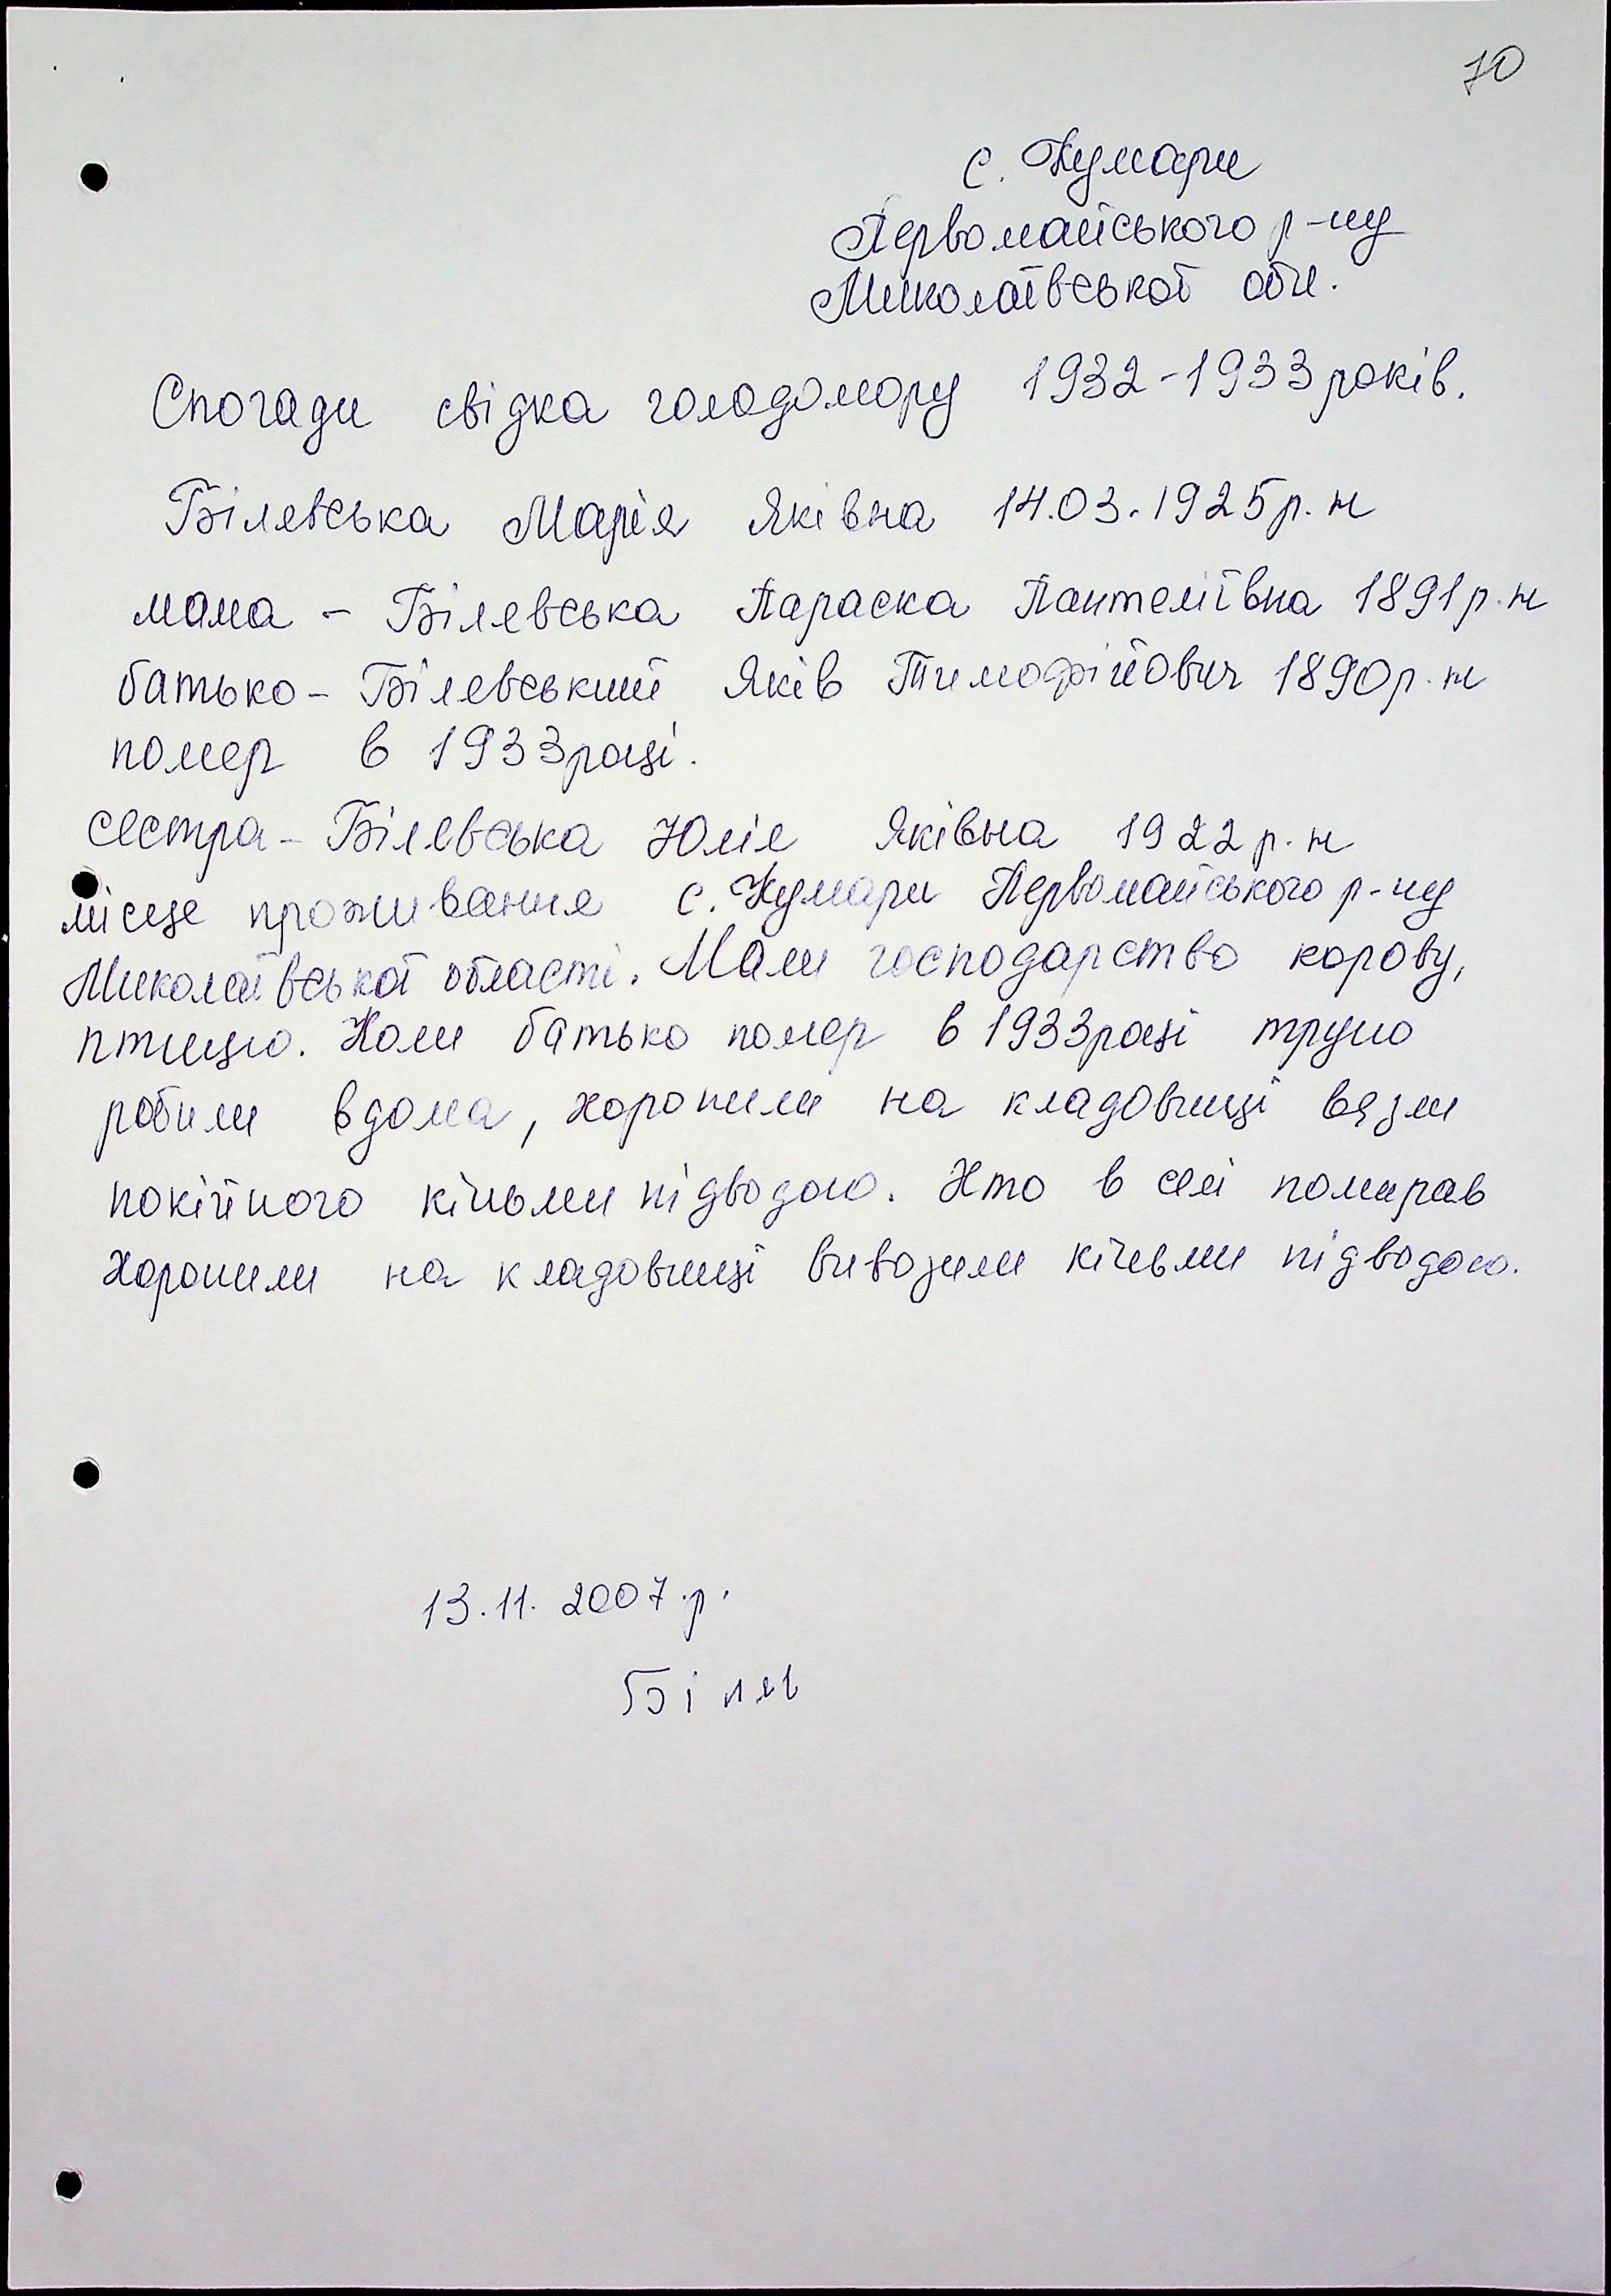 70
с. Кумари
Первомайського р-ну
Миколаївської обл.
Спогади свідка голодомору 1932-1933 років.
Білевська Марія Яківна 14.03.1925 р.н
мама - Білевська Параска Пантеліївна 1891 р.н
батько - Білевський Яків Тимофійович 1890 р.н
помер в 1933 році.
сестра - Білевська Юлія Яківна 1922 р.н
місце проживання с. Кумари Первомайського р-ну
Миколаївської області. Мали господарство корову,
птицю. Коли батько помер в 1933 році труно
робили вдома, хоронили на кладовищі вязли
покійного кіньми підводою. Хто в селі помирав
хоронили на кладовищі вивозили кіньми підводою.
13.11.2007.р.
Білев